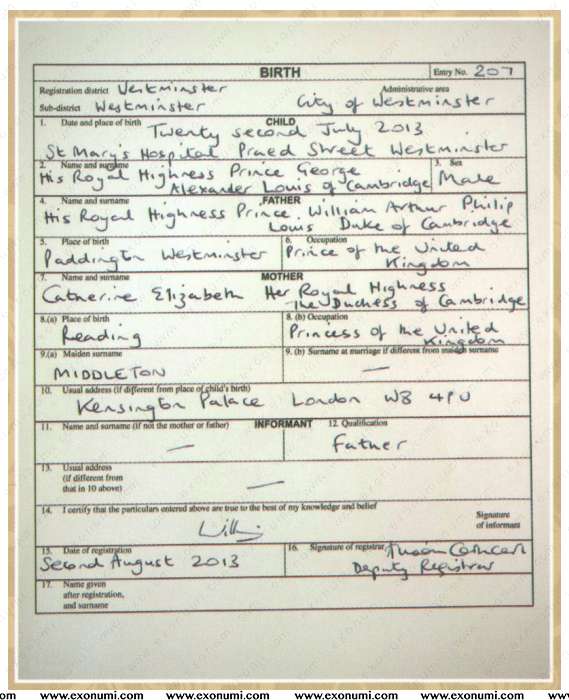 BIRTH
Entry No. 207
Registration district Westminster
Administrative area
Sub-district Westminster
City of Westminster
1. Date and place of birth
CHILD
Twenty second July 2013
St Mary's Hospital Praed Street Westminster
2. Name and surname
3. Sex
His Royal Highness Prince George
Alexander Louis of Cambridge
Male
4. Name and surname
FATHER
His Royal Highness Prince William Arthur Philip
Louis Duke of Cambridge
5. Place of birth
6. Occupation
Paddington Westminster
Prince of the United
Kingdom
7. Name and surname
MOTHER
Catherine Elizabeth Her Royal Highness
The Duchess of Cambridge
8.(a) Place of birth
8. (b) Occupation
Reading
Princess of the United
Kingdom
9.(a) Maiden surname
9. (b) Surname at marriage if different from maiden surname
MIDDLETON
—
10. Usual address (if different from place of child's birth)
Kensington Palace London W8 4PU
11. Name and surname (if not the mother or father)
INFORMANT
12. Qualification
—
Father
13. Usual address
(if different from
that in 10 above)
—
14. I certify that the particulars entered above are true to the best of my knowledge and belief
Signature
of informant
15. Date of registration
16. Signature of registrar
Second August 2013
Deputy Registrar
17. Name given
after registration,
and surname
www.exonumi.com www.exonumi.com www.exonumi.com www.exonumi.com